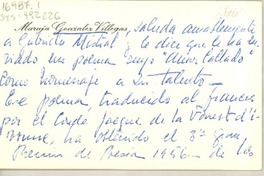 Maruja González Villegas saluda amablemente
a Gabriela Mistral y le dice que le ha en-
viado un poema suyo "Amor Callado"
como homenaje a su talento -
Ese poema, traducido al francés
por el Conde Jacque de la Forest d'i-
vonne, ha obtenido el 3er gran
Premio de Poesía 1956 - de los